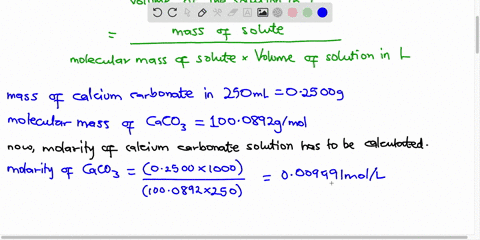 Volume of the solution in L
= mass of solute
molecular mass of solute × Volume of solution in L
mass of calcium carbonate in 250mL = 0.2500g
molecular mass of CaCO3 = 100.0892g/mol
now, molarity of calcium carbonate solution has to be calculated.
molarity of CaCO3 = (0.2500×1000) = 0.009991mol/L
(100.0892×250)